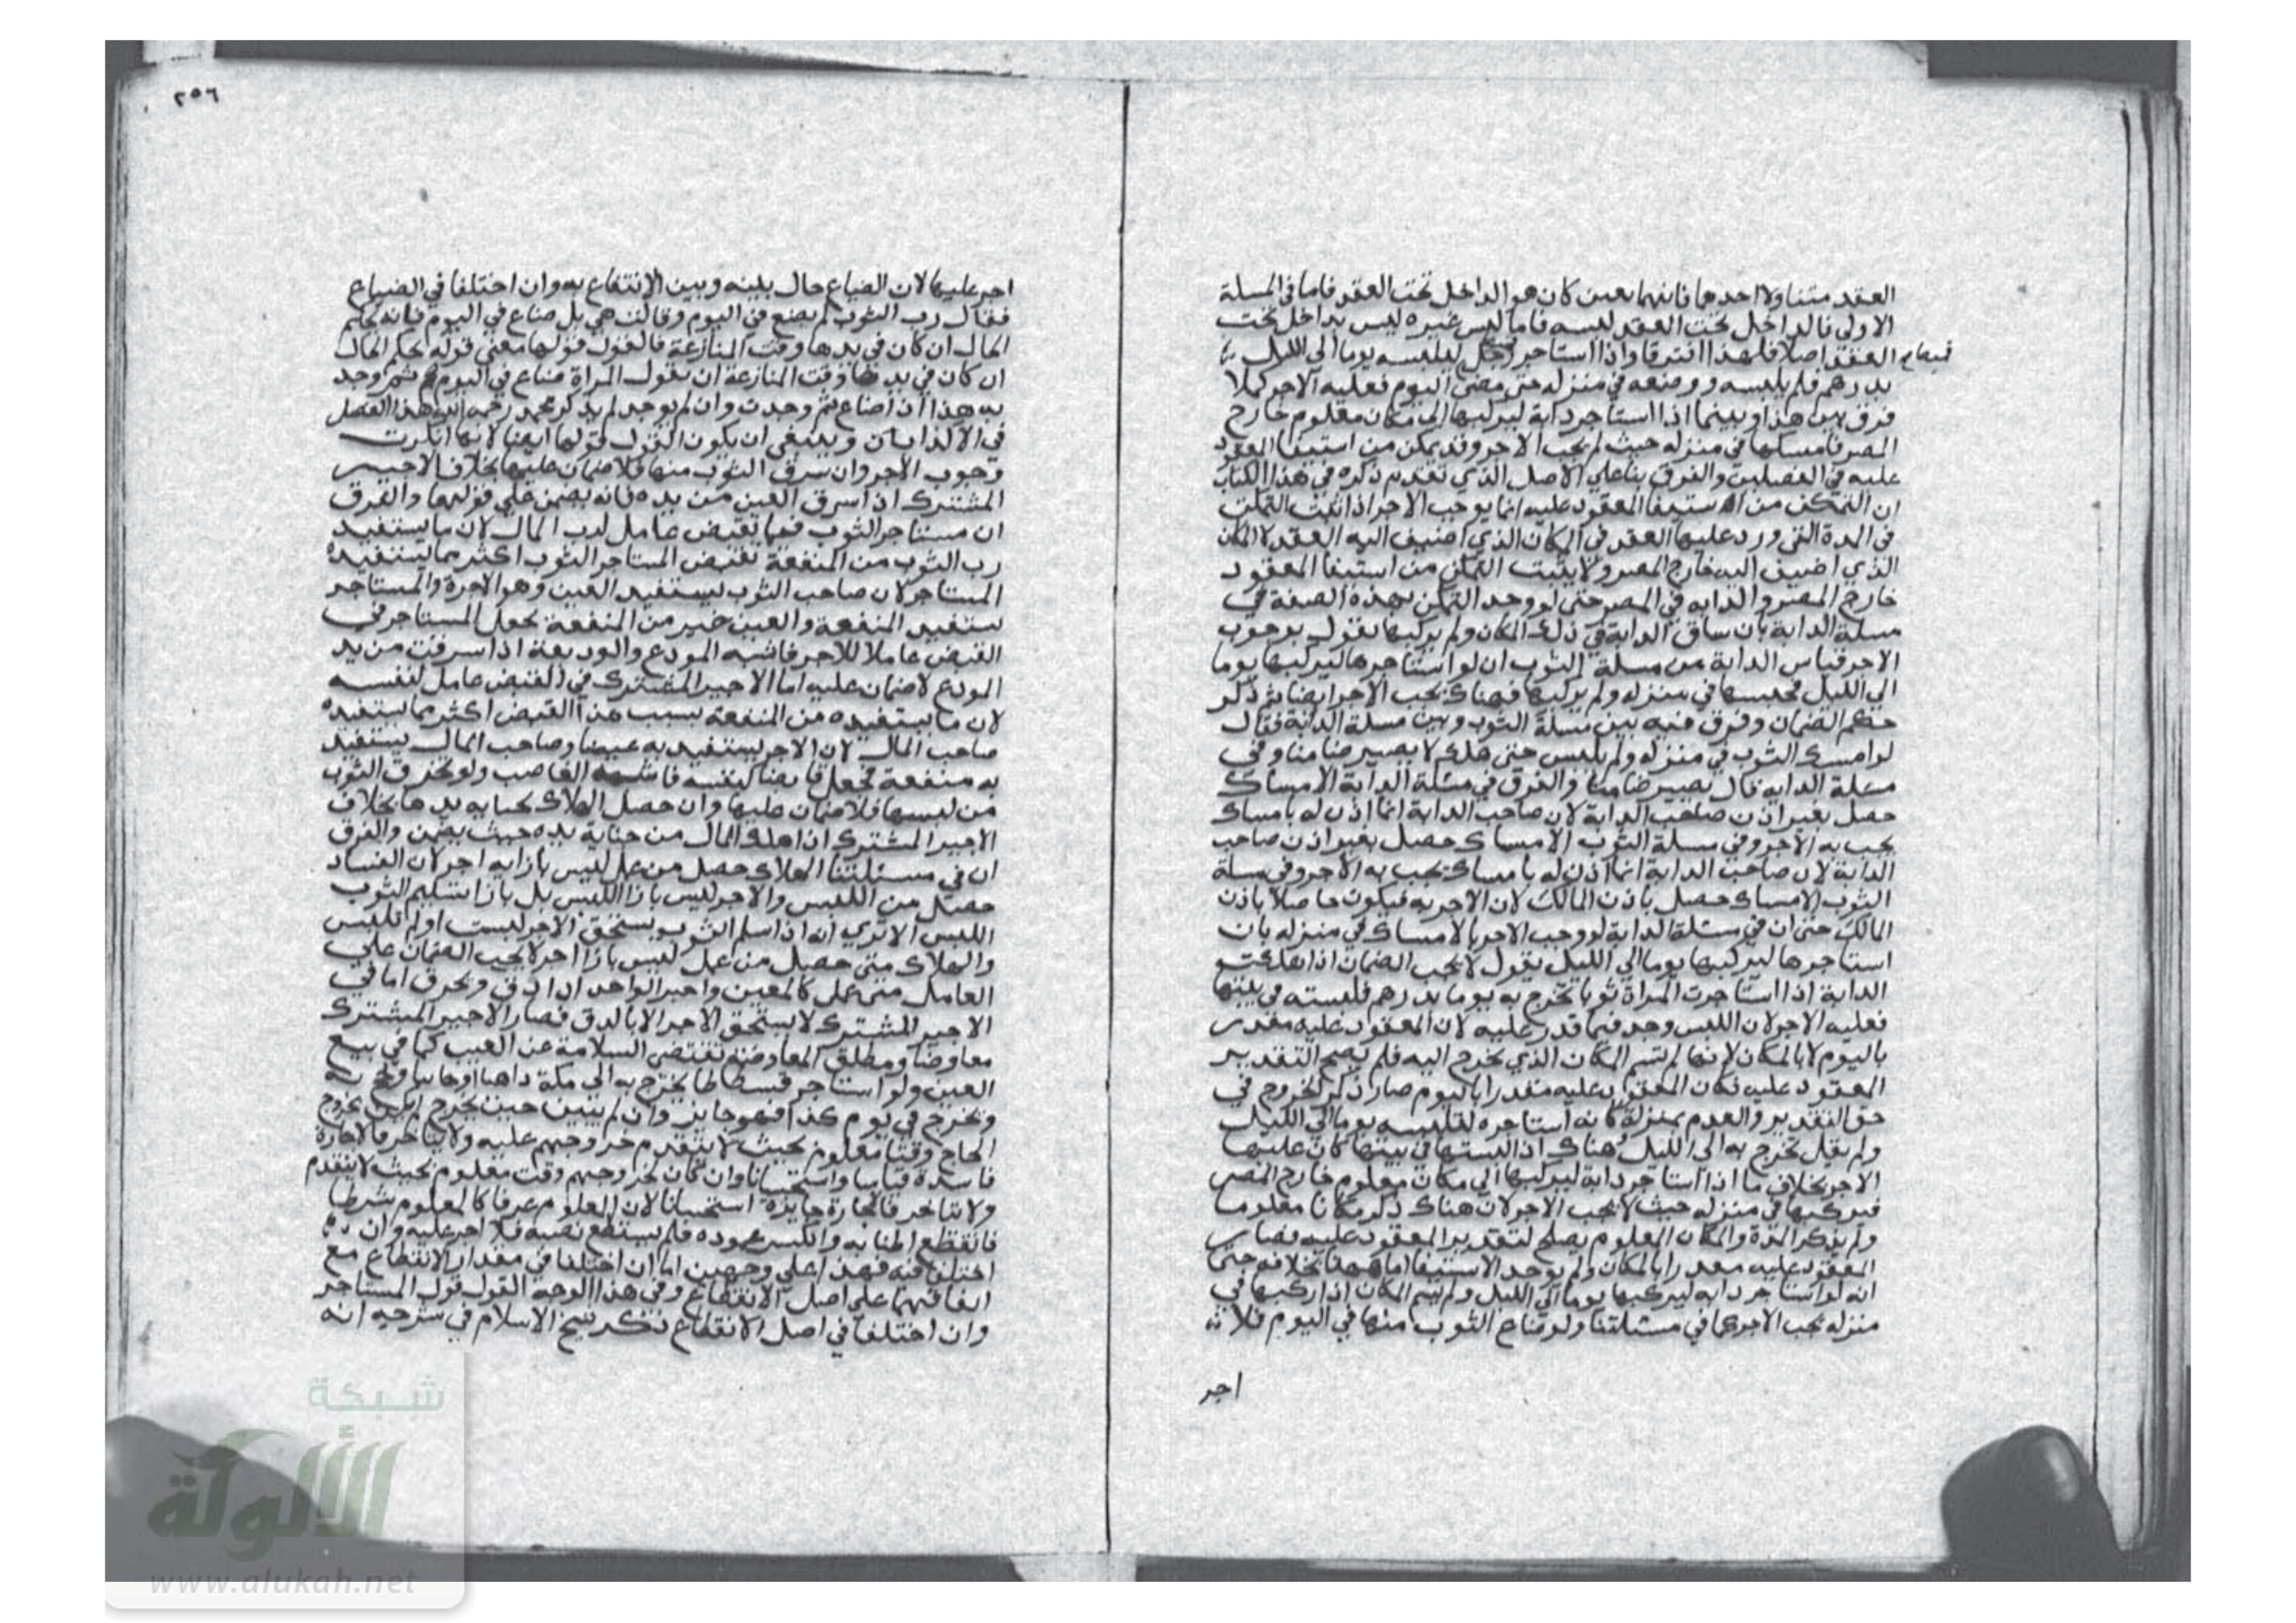 العقد متناولا احدهما فايهما بعين كان هو الداخل تحت العقد فاما في المسلة
الاولى فالداخل تحت العقد لبسه فاما لبس غيره ليس بداخل تحت
العقد اصلا فلهذا افترقا واذا استاجر رجل ليلبسه يوما الى الليل
بدرهم فلم يلبسه ووضعه في منزله حتى مضى اليوم فعليه الاجر كملا
فرق بين هذا وبينما اذا استاجر دابة ليركبها الى مكان معلوم خارج
المصر فامسكها في منزله حيث لم يجب الاجر وقد يمكن من استيفا المعقود
عليه في الفصلين والفرق بنا على الاصل الذي تقدم ذكره في هذا الكتاب
ان التمكن من استيفا المعقود عليه انما يوجب الاجر اذا ثبت التمكن
في المدة التي ورد عليها العقد في المكان الذي اضيف اليه العقد لا المكان
الذي اضيف اليه خارج المصر ولا يثبت التمكن من استيفا المعقود
خارج المصر والدابه في المصر حتى لو وجد التمكن بهذه الصفة في
مسلة الدابة بان ساق الدابة في ذلك المكان ولم يركبها نقول بوجوب
الاجر قياس الدابة من مسلة الثوب ان لو استاجرها ليركبها يوما
الى الليل فحبسها في منزله ولم يركبها فهناك يجب الاجر ايضا ثم ذكر
حكم الضمان وفرق فيه بين مسلة الثوب وبين مسلة الدابة فقال
لو امسك الثوب في منزله ولم يلبس حتى هلك لا يصير ضامنا وفي
مسلة الدابه قال يصير ضامنا والفرق في مسلة الدابة الامساك
حصل بغير اذن صاحب الدابة لان صاحب الدابة انما اذن له بامساك
يجب به الاجر وفي مسلة الثوب الامساك حصل بغير اذن صاحب
الدابة لان صاحب الدابة انما اذن له بامساك يجب به الاجر وفي مسلة
الثوب الامساك حصل باذن المالك لان الاجر به فيكون حاصلا باذن
المالك حتى ان في مسئلة الدابة لو وجب الاجر بالامساك في منزله بان
استاجرها ليركبها يوما الى الليل يقول لا يجب الضمان اذا هلكت
الدابة اذا استاجرت المراة ثوبا تخرج به يوما بدرهم فلبسته في بيتها
فعليه الاجر لان اللبس وجد فيما قدر عليه لان المعقود عليه مقدر
باليوم لا بالمكان لانها لم تسم المكان الذي تخرج اليه فلم يصح التقدير
المعقود عليه فكان المعقود عليه مقدرا باليوم صار ذكر الخروج في
حق التقدير والعدم بمنزلة كانه استاجره لتلبسه يوما الى الليل
ولم يقل تخرج به الى الليل هناك اذا لبستها في بيتها كان عليها
الاجر بخلاف ما اذا استاجر دابة ليركبها الى مكان معلوم خارج المصر
فيركبها في منزله حيث لا يجب الاجر لان هناك ذكر مكانا معلوما
ولم يذكر المدة والمكان المعلوم يصلح لتقدير المعقود عليه فصار
المعقود عليه مقدرا بالمكان ولم يوجد الاستيفا اما ههنا بخلافه حتى
انه لو استاجر دابه ليركبها يوما الى الليل ولم يسم المكان اذا ركبها في
منزله يجب الاجر كما في مسئلتنا ولو ضاع الثوب منها في اليوم فلا
اجر
٢٥٦
اجر عليها لان الضياع حال بينه وبين الانتفاع به وان اختلفا في الضياع
فقال رب الثوب لم يضع في اليوم وقالت هي بل ضاع في اليوم فانه يحكم
الحال ان كان في يدها وقت المنازعة فالقول قولها معنى قوله يحكم الحال
ان كان في يدها وقت المنازعة ان يقول المراة ضاع في اليوم ثم وجد
به هذا اذا ضاع ثم وجدت وان لم يوجد لم يذكر محمد رحمه الله هذا الفصل
في الا وينبغي ان يكون القول قولها ايضا لانها انكرت
وجوب الاجر وان سرق الثوب منها فلا ضمان عليها بخلاف الاجير
المشترك اذا سرق العين من يده فانه يضمن على قولهما والفرق
ان مستاجر الثوب فيما يقبض عامل لرب المال لان ما يستفيد
رب الثوب من المنفعة بقبض المستاجر الثوب اكثر مما يستفيده
المستاجر لان صاحب الثوب يستفيد العين وهو الاجرة والمستاجر
يستفيد المنفعة والعين خير من المنفعة يجعل المستاجر في
القبض عاملا للاجر فاشبه المودع والوديعة اذا سرقت من يد
المودع لا ضمان عليه اما الاجير المشترك في القبض عامل لنفسه
لان ما يستفيده من المنفعة بسبب هذا القبض اكثر مما يستفيده
صاحب المال لان الاجر يستفيد به عينا وصاحب المال يستفيد
به منفعة فجعل قابضا لنفسه فاشبه الغاصب ولو تخرق الثوب
من لبسها فلا ضمان عليها وان حصل الهلاك بجنايه يدها بخلاف
الاجير المشترك اذا هلك المال من جناية يده حيث يضمن والفرق
ان في مسئلتنا الهلاك حصل من عمل ليس بازايه اجر لان الفساد
حصل من اللبس والاجر ليس بازا اللبس بل بازا تسليم الثوب
اللبس الا ترى انه اذا سلم الثوب يستحق الاجر لبست اولم تلبس
والهلاك متى حصل من عمل ليس بازا اجر لا يجب الضمان على
العامل متى عمل كالمعين واجير الواحد اذا دق وتخرق اما في
الاجير المشترك لا يستحق الاجر الا بالدق فصار الاجير المشترك
معاوضا ومطلق المعاوضة تقتضي السلامة عن العيب كما في بيع
العين ولو استاجر فسطاطا يخرج به الى مكة ذاهبا وجائيا ويحج به
ويخرج في يوم كذا فهو جايز وان لم يبين حين يخرج
الحاج وقتا معلوم بحيث لا يتقدم خروجهم عليه ولا يتاخر فالاجارة
فاسدة قياسا واستحسانا وان كان لخروجهم وقت معلوم بحيث لا يتقدم
ولا يتاخر فالاجارة جايزة استحسانا لان المعلوم عرفا كالمعلوم شرطا
فانقطع اطنابه وانكسر عموده فلم يستطع نصبه فلا اجر عليه وان
اختلفا فيه فهذا على وجهين اما ان اختلفا في مقدار الانقطاع مع
اتفاقهما على اصل الانقطاع وفي هذا الوجه القول قول المستاجر
وان اختلفا في اصل الانقطاع ذكر شيخ الاسلام في شرحه انه
شبكة
الألوكة
www.alukah.net